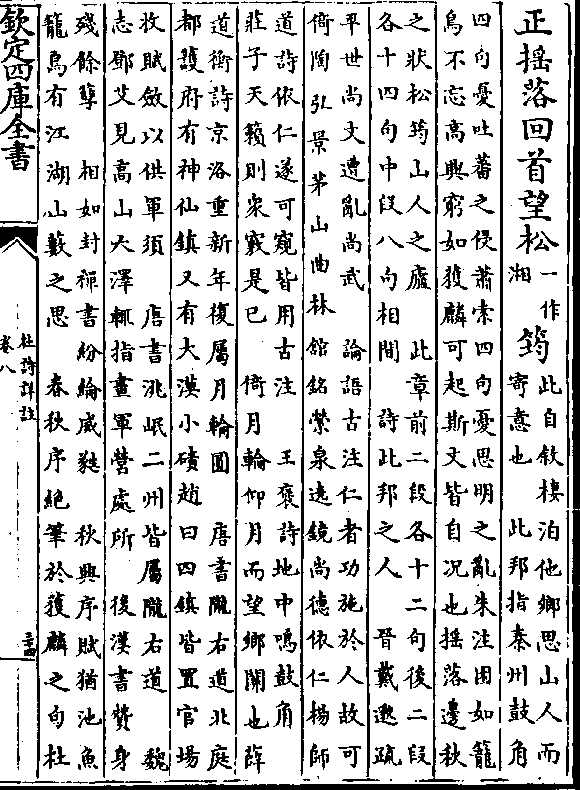 正揺落回首望松一作湘筠此自敘棲泊他鄉思山人而
寄意也 此邦指秦州鼓角
四句憂吐蕃之侵蕭索四句憂思明之亂朱注困如籠
鳥不忘高興窮如獲麟可起斯文皆自况也揺落邊秋
之狀松筠山人之廬 此章前二段各十二句後二段
各十四句中段八句相間 詩此邦之人 晉戴邈疏
平世尚文遭亂尚武 論語古注仁者功施於人故可
倚陶弘景茅山曲林館銘縈泉逺鏡尚德依仁楊師
道詩依仁遂可窺皆用古注 王褒詩地中鳴鼓角
莊子天籟則衆竅是已 倚月輪仰月而望鄉闗也薛
道衡詩京洛重新年復屬月輪圓 唐書隴右道北庭
都護府有神仙鎮又有大漠小磧趙曰四鎮皆置官場
收賦斂以供軍須 唐書洮岷二州皆屬隴右道 魏
志鄧艾見高山大澤輒指畫軍營處所 後漢書贊身
殘餘孽 相如封禪書紛綸威蕤 秋興序賦猶池魚
籠鳥有江湖山藪之思 春秋序絶筆於獲麟之句杜
欽定四庫全書
杜詩詳註
卷八